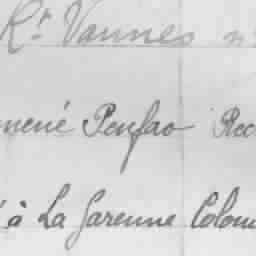 Rt Vannes n
mené Penfao Rec
à La Garenne Colom